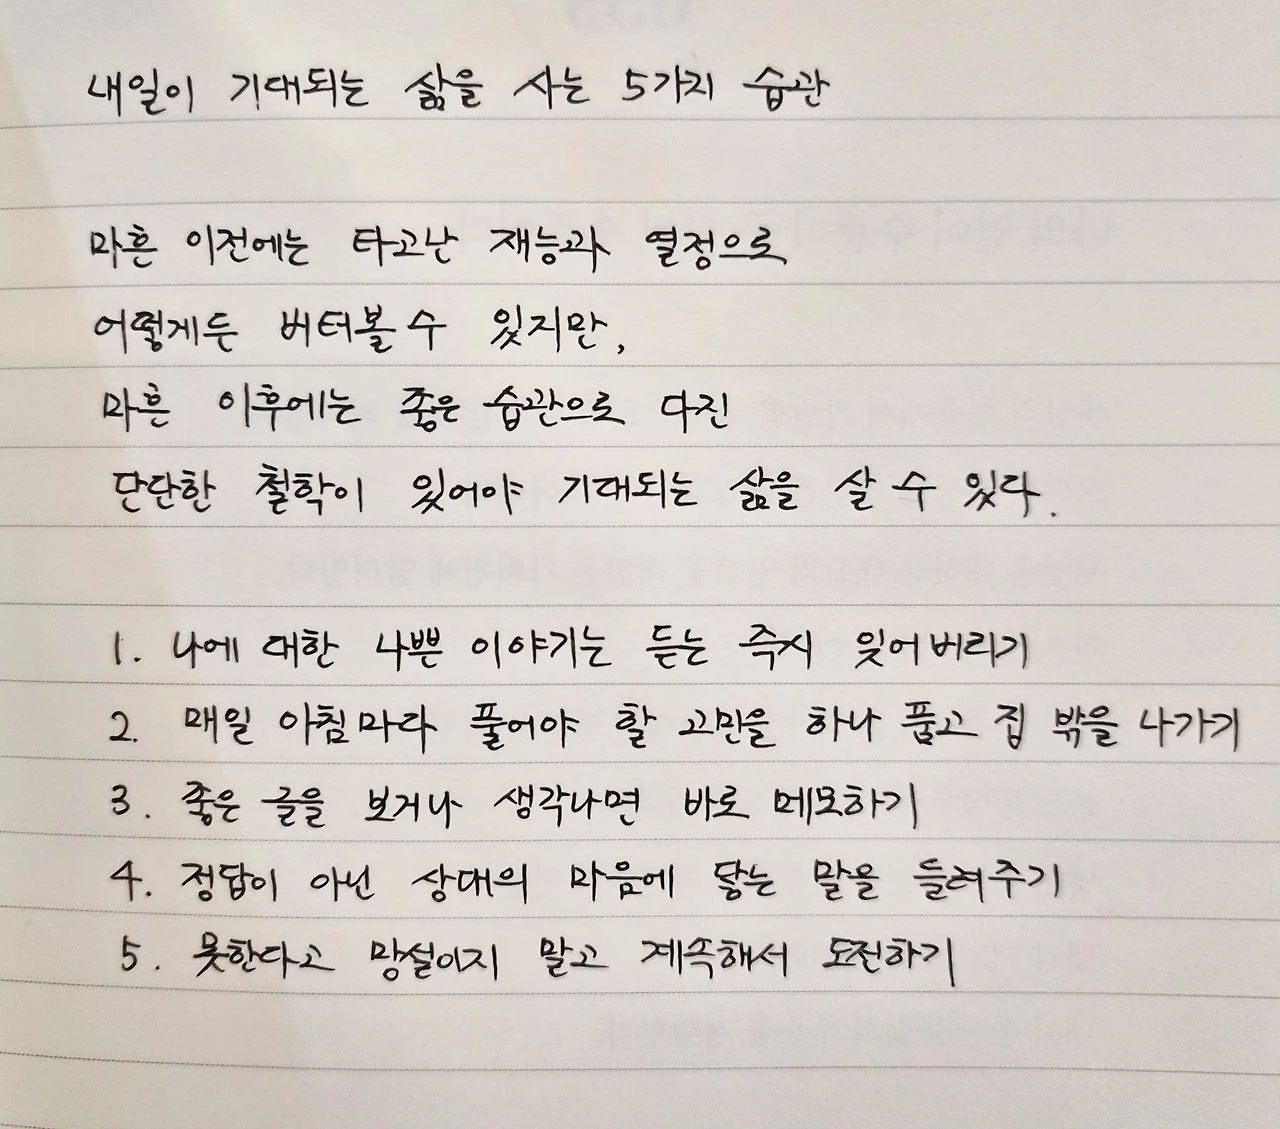 내일이 기대되는 삶을 사는 5가지 습관
마흔 이전에는 타고난 재능과 열정으로
어떻게든 버텨볼 수 있지만,
마흔 이후에는 좋은 습관으로 다진
단단한 철학이 있어야 기대되는 삶을 살 수 있다.
1. 나에 대한 나쁜 이야기는 듣는 즉시 잊어버리기
2. 매일 아침마다 풀어야 할 고민을 하나 품고 집 밖을 나가기
3. 좋은 글을 보거나 생각나면 바로 메모하기
4. 정답이 아닌 상대의 마음에 닿는 말을 들려주기
5. 못한다고 망설이지 말고 계속해서 도전하기